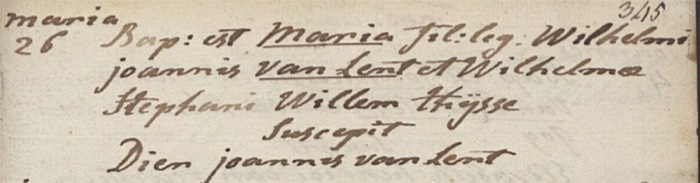 345
maria
26 Bap: est Maria fil: leg: Wilhelmi
joannis van Lent et Wilhelmæ
Stephani Willem Thijsse
Suscepit
Dien joannis van Lent